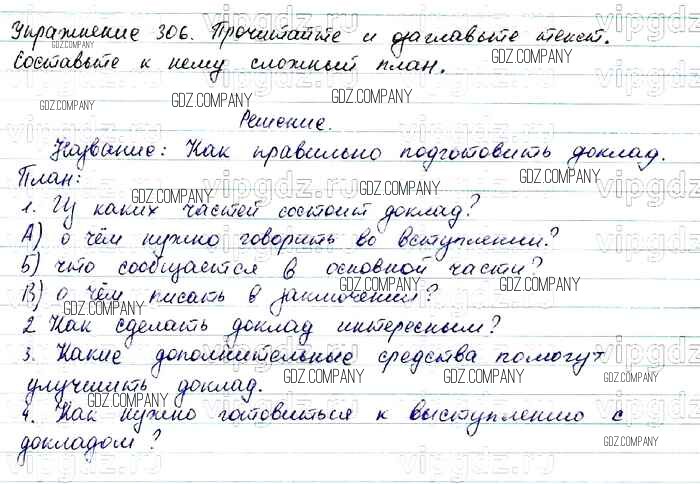 Упражнение 306. Прочитайте и озаглавьте текст.
Составьте к нему сложный план.
Решение.
Название: Как правильно подготовить доклад.
План:
1. Из каких частей состоит доклад?
А) о чём нужно говорить во вступлении?
Б) что сообщается в основной части?
В) о чём писать в заключении?
2 Как сделать доклад интересным?
3. Какие дополнительные средства помогут
улучшить доклад.
4. Как нужно готовиться к выступлению с
докладом?